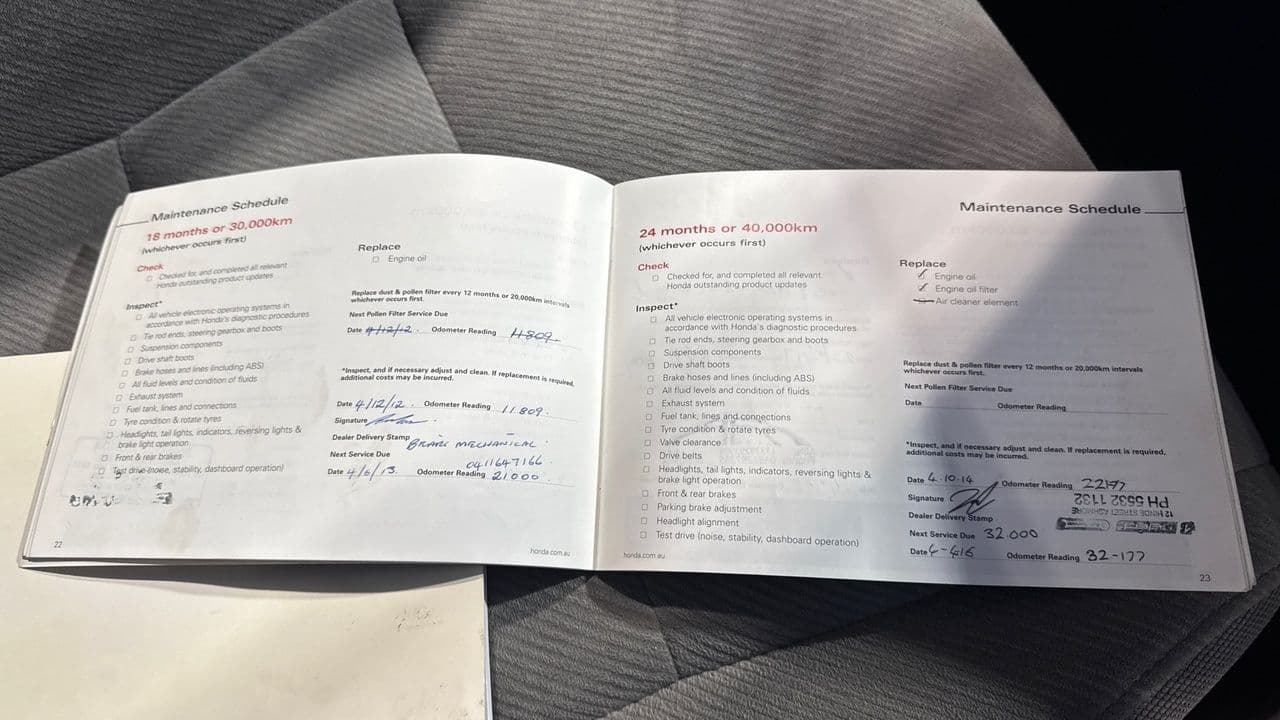 Maintenance Schedule
18 months or 30,000km
(whichever occurs first)
Check
Checked for, and completed all relevant
Honda outstanding product updates
Inspect*
All vehicle electronic operating systems in
accordance with Honda's diagnostic procedures
Tie rod ends, steering gearbox and boots
Suspension components
Drive shaft boots
Brake hoses and lines (including ABS)
All fluid levels and condition of fluids
Exhaust system
Fuel tank, lines and connections
Tyre condition & rotate tyres
Headlights, tail lights, indicators, reversing lights &
brake light operation
Front & rear brakes
Test drive (noise, stability, dashboard operation)
22
Replace
Engine oil
Replace dust & pollen filter every 12 months or 20,000km intervals
whichever occurs first.
Next Pollen Filter Service Due
Date 4/12/12. Odometer Reading 11809
*Inspect, and if necessary adjust and clean. If replacement is required,
additional costs may be incurred.
Date 4/12/12. Odometer Reading 11.809.
Signature
Dealer Delivery Stamp MECHANICAL
Next Service Due 0411647166
Date 4/6/13 Odometer Reading 21000
honda.com.au
Maintenance Schedule
24 months or 40,000km
(whichever occurs first)
Check
Checked for, and completed all relevant
Honda outstanding product updates
Inspect*
All vehicle electronic operating systems in
accordance with Honda's diagnostic procedures
Tie rod ends, steering gearbox and boots
Suspension components
Drive shaft boots
Brake hoses and lines (including ABS)
All fluid levels and condition of fluids
Exhaust system
Fuel tank, lines and connections
Tyre condition & rotate tyres
Valve clearance
Drive belts
Headlights, tail lights, indicators, reversing lights &
brake light operation
Front & rear brakes
Parking brake adjustment
Headlight alignment
Test drive (noise, stability, dashboard operation)
honda.com.au
Replace
Engine oil
Engine oil filter
Air cleaner element
Replace dust & pollen filter every 12 months or 20,000km intervals
whichever occurs first.
Next Pollen Filter Service Due
Date Odometer Reading
*Inspect, and if necessary adjust and clean. If replacement is required,
additional costs may be incurred.
Date 4.10.14 Odometer Reading 22177
Signature
PH 5532 1132
Dealer Delivery Stamp
Next Service Due 32.000
Date 4-416 Odometer Reading 32-177
23